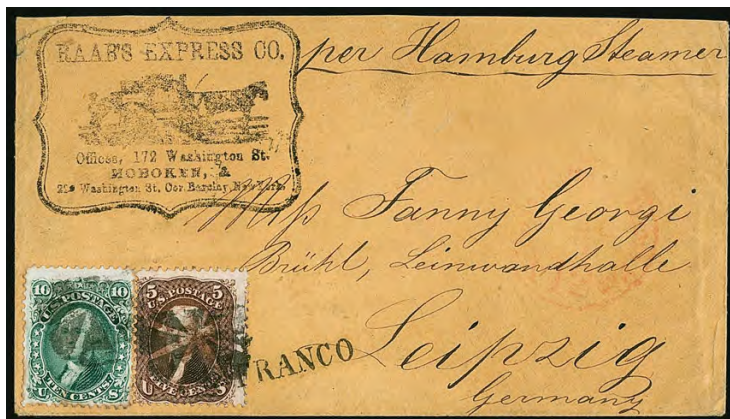 RAAB'S EXPRESS CO.
Offices, 172 Washington St.
HOBOKEN, &
Washington St. Cor. Barclay New York.
per Hamburg Steamer
Fanny Georgi
Brühl, Leinwandhalle
Leipzig
Germany
FRANCO
10 10
U.S. POSTAGE
TEN CENTS
U S
5 5
U.S. POSTAGE
FIVE CENTS